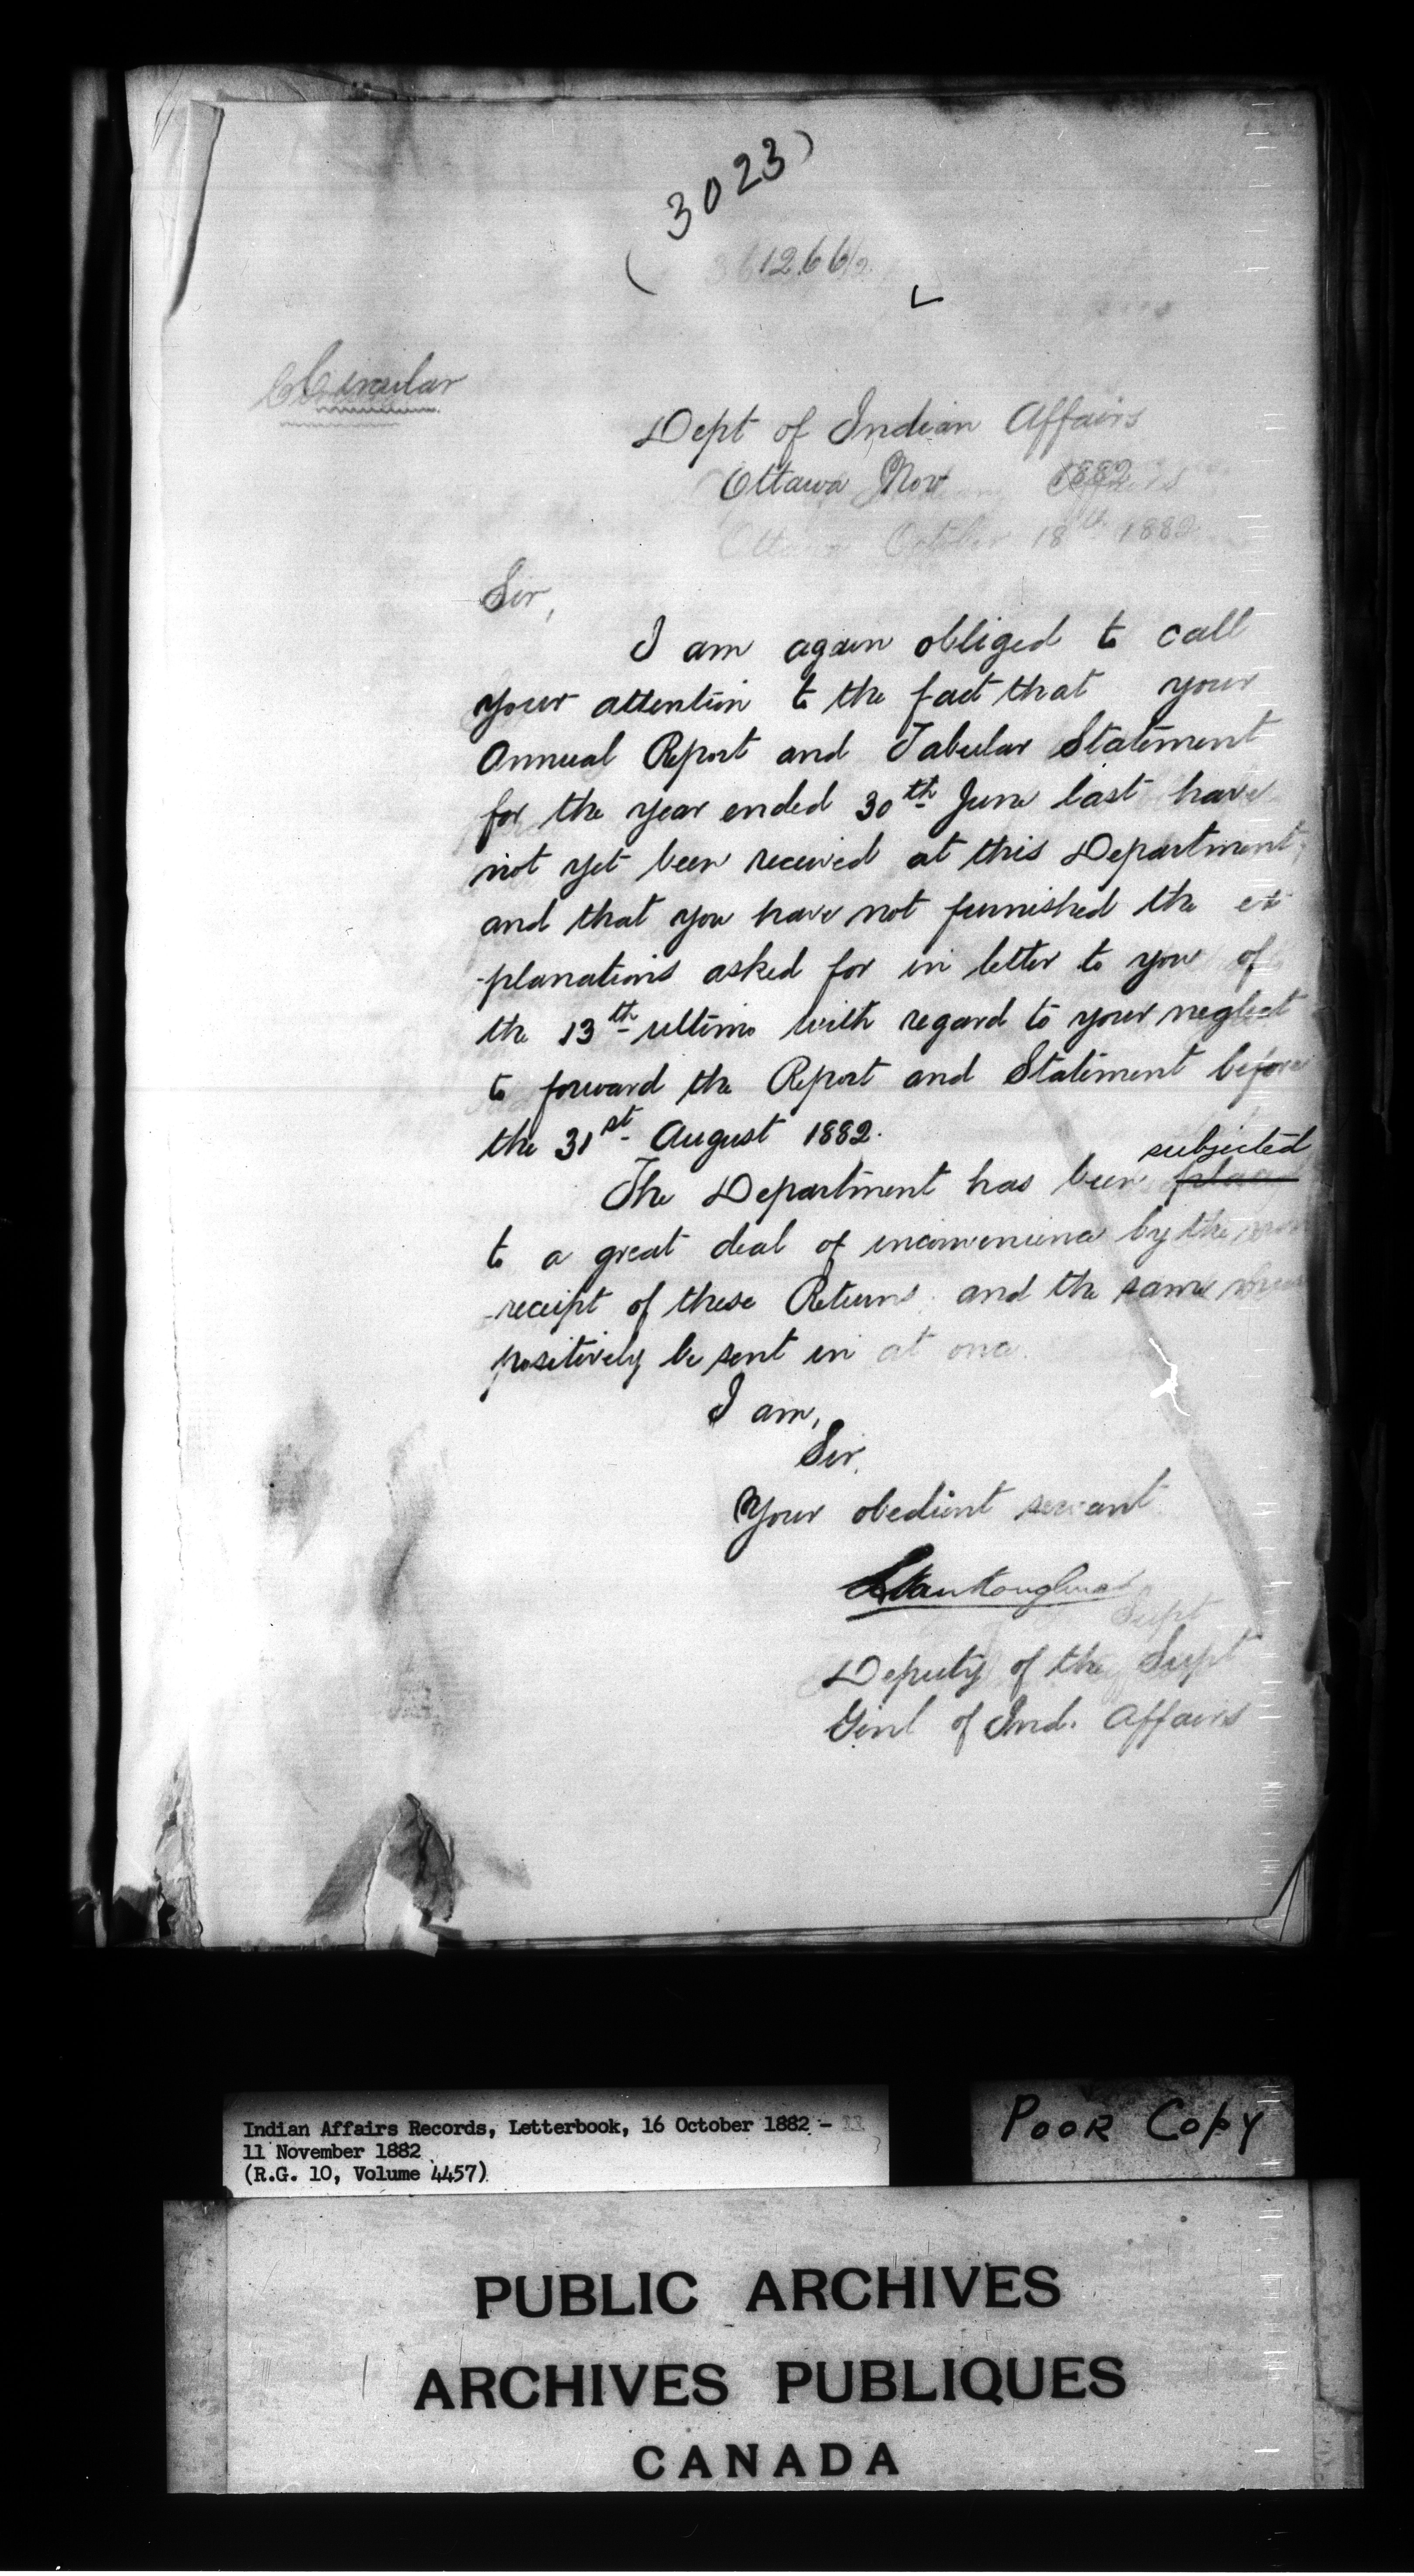 (3023)
Circular
Dept of Indian Affairs
Ottawa Nov 1882
Ottawa October 18th 1882
Sir,
I am again obliged to call
your attention to the fact that your
Annual Report and Tabular Statement
for the year ended 30th June last have
not yet been received at this Department,
and that you have not furnished the ex
-planations asked for in letter to you of
the 13th ultimo with regard to your neglect
to forward the Report and Statement before
the 31st August 1882.
subjected
The Department has been placed
to a great deal of inconvenience by the non
-receipt of these Returns and the same must
positively be sent in at once.
I am,
Sir,
Your obedient servant
L Vankoughnet
Deputy of the Supt
Genl of Ind. Affairs
Indian Affairs Records, Letterbook, 16 October 1882 -
11 November 1882
(R.G. 10, Volume 4457)
POOR COPY
PUBLIC ARCHIVES
ARCHIVES PUBLIQUES
CANADA